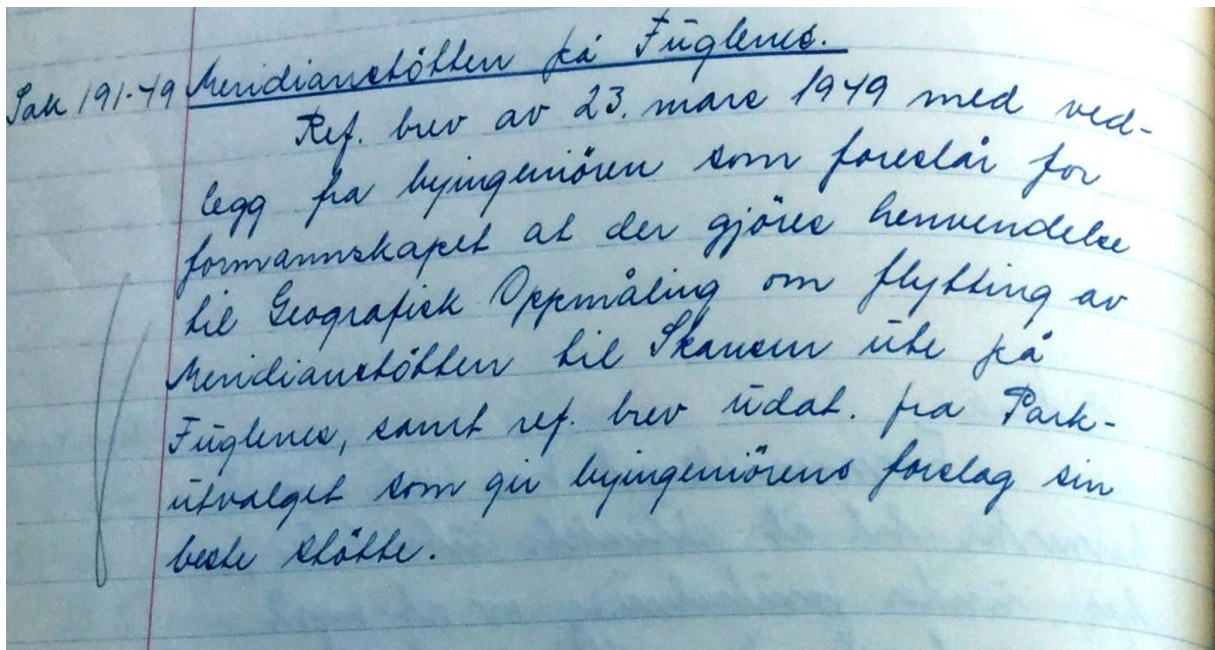 Sak 191-49 Meridianstötten på Fuglenes.
Ref. brev av 23. mars 1949 med ved-
legg fra byingeniören som foreslår for
formannskapet at der gjöres henvendelse
til Geografisk Oppmåling om flytting av
Meridianstötten til Skansen ute på
Fuglenes, samt ref. brev udat. fra Park-
utvalget som gir byingeniörens forslag sin
beste stötte.